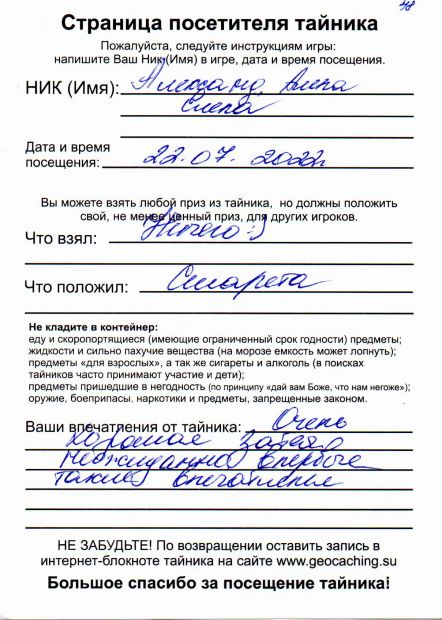 48
Страница посетителя тайника
Пожалуйста, следуйте инструкциям игры:
напишите Ваш Ник (Имя) в игре, дата и время посещения.
НИК (Имя): Александр, Алина
Дата и время
посещения: 22.07.2022
Вы можете взять любой приз из тайника, но должны положить
свой, не менее ценный приз, для других игроков.
Что взял: Ничего :)
Что положил: Сигарета
Не кладите в контейнер:
еду и скоропортящиеся (имеющие ограниченный срок годности) предметы;
жидкости и сильно пахучие вещества (на морозе емкость может лопнуть);
предметы «для взрослых», а так же сигареты и алкоголь (в поисках
тайников часто принимают участие и дети);
предметы пришедшие в негодность (по принципу «дай вам Боже, что нам негоже»);
оружие, боеприпасы, наркотики и предметы, запрещенные законом.
Ваши впечатления от тайника: Очень
хорошая затея
Неожиданно впервые
такие впечатленье
НЕ ЗАБУДЬТЕ! По возвращении оставить запись в
интернет-блокноте тайника на сайте www.geocaching.su
Большое спасибо за посещение тайника!